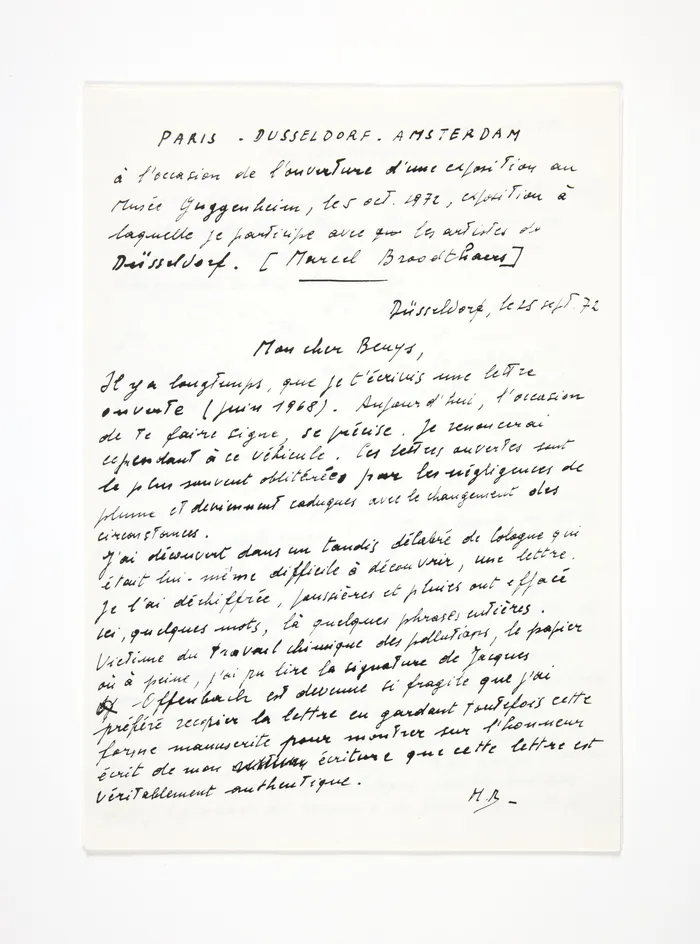 PARIS - DUSSELDORF - AMSTERDAM
à l'occasion de l'ouverture d'une exposition au
Musée Guggenheim, le 5 oct. 1972, exposition à
laquelle je participe avec les artistes de
Düsseldorf. [Marcel Broodthaers]
Düsseldorf, le 25 sept. 72
Mon cher Beuys,
Il y a longtemps, que je t'écrivis une lettre
ouverte (juin 1968). Aujourd'hui, l'occasion
de te faire signe, se précise. Je renoncerai
cependant à ce véhicule. Ces lettres ouvertes sont
le plus souvent oblitérées par les négligences de
plume et deviennent caduques avec le changement des
circonstances.
J'ai découvert dans un taudis délabré de Cologne qui
était lui-même difficile à découvrir, une lettre.
Je l'ai déchiffrée, poussières et pluies ont effacé
ici, quelques mots, là quelques phrases entières.
Victime du travail chimique des pollutions, le papier
où à peine, j'ai pu lire la signature de Jacques
Offenbach est devenue si fragile que j'ai
préféré recopier la lettre en gardant toutefois cette
forme manuscrite pour montrer sur l'honneur
écrit de mon écriture que cette lettre est
véritablement authentique.
M.B-